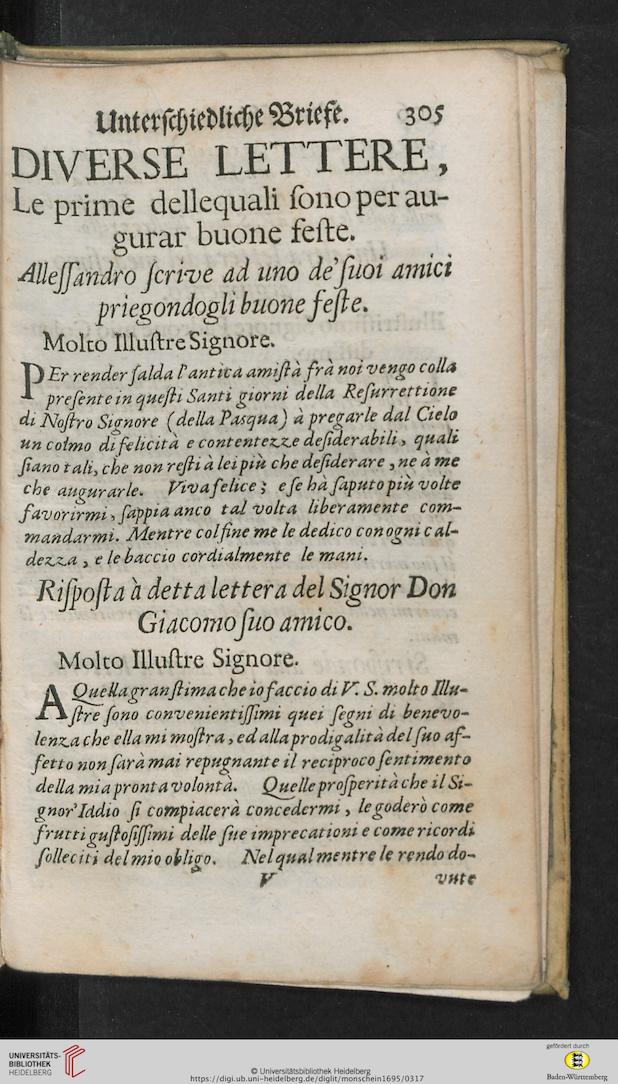 Unterſchiedliche Briefe. 305
DIVERSE LETTERE,
Le prime dellequali ſono per au-
gurar buone feſte.
Alleſſandro ſcrive ad uno de' ſuoi amici
priegondogli buone feſte.
Molto Illuſtre Signore.
PEr render ſalda l'antica amiſtà frà noi vengo colla
preſente in queſti Santi giorni della Reſurrettione
di Noſtro Signore (della Pasqua) à pregarle dal Cielo
un colmo di felicità e contentezze deſiderabili, quali
ſiano tali, che non reſti à lei più che deſiderare, ne à me
che augurarle. Viva felice; e ſe hà ſaputo più volte
favorirmi, ſappia anco tal volta liberamente com-
mandarmi. Mentre col fine me le dedico con ogni cal-
dezza, e le baccio cordialmente le mani.
Riſpoſta à detta lettera del Signor Don
Giacomo ſuo amico.
Molto Illuſtre Signore.
A Quella gran ſtima che io faccio di V. S. molto Illu-
ſtre ſono convenientiſſimi quei ſegni di benevo-
lenza che ella mi moſtra, ed alla prodigalità del ſuo af-
fetto non ſarà mai repugnante il reciproco ſentimento
della mia pronta volontà. Quelle proſperità che il Si-
gnor' Iddio ſi compiacerà concedermi, le goderò come
frutti guſtoſiſſimi delle ſue imprecationi e come ricordi
ſolleciti del mio obligo. Nel qual mentre le rendo do-
V vute
UNIVERSITÄTS-
BIBLIOTHEK
HEIDELBERG
© Universitätsbibliothek Heidelberg
https://digi.ub.uni-heidelberg.de/diglit/monschein1695/0317
gefördert durch
Baden-Württemberg